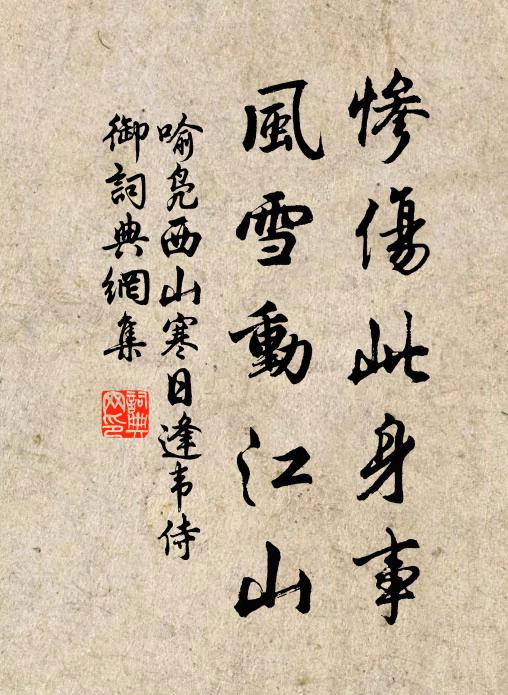 慘傷此身事
風雪動江山
喻鳧西山寒日逢韦侍
御詞典網集
詞典
网印